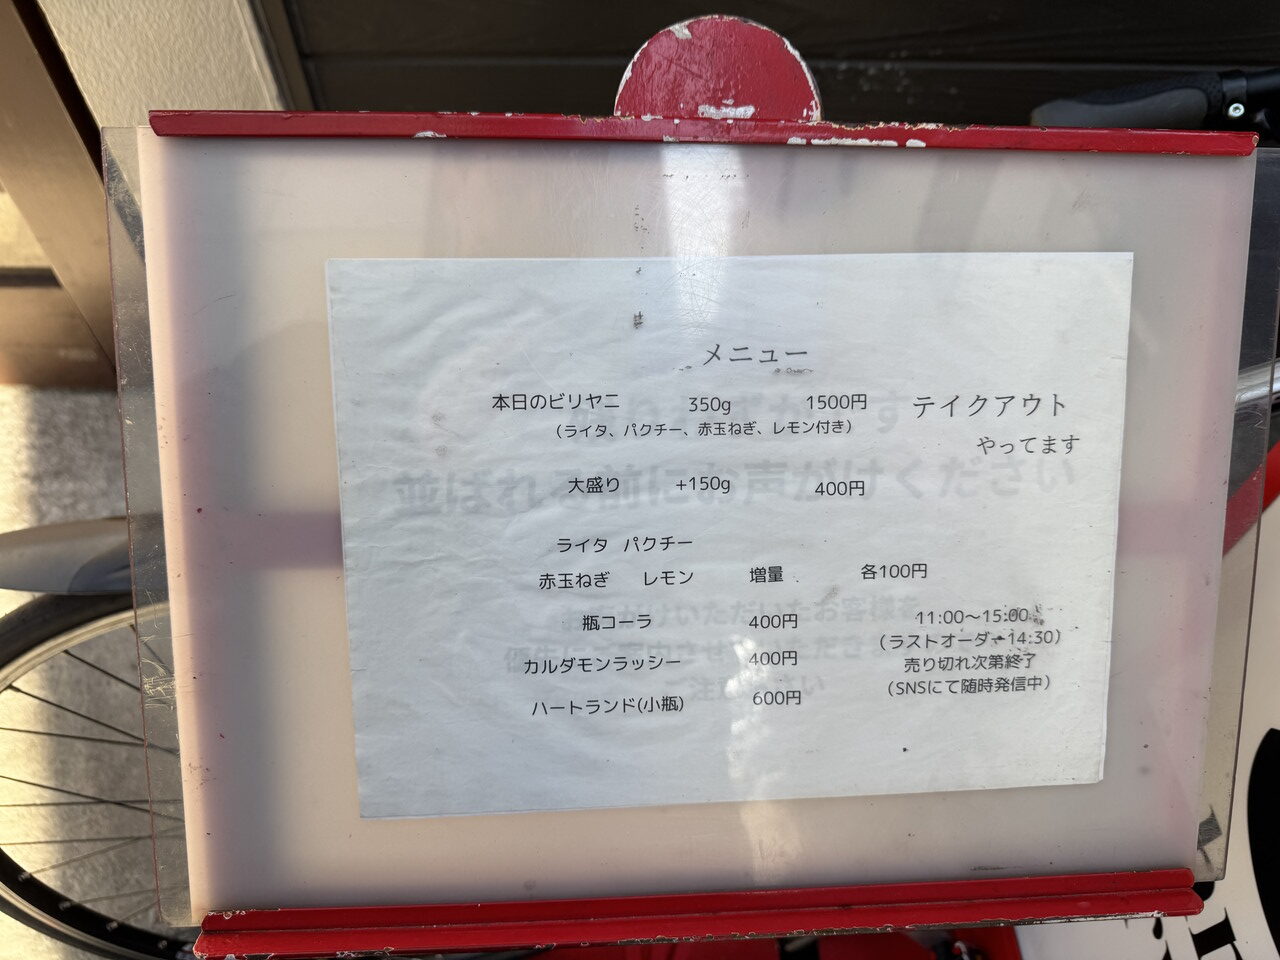 メニュー
本日のビリヤニ 350g 1500円
（ライタ、パクチー、赤玉ねぎ、レモン付き）
テイクアウト
やってます
大盛り +150g 400円
ライタ パクチー
赤玉ねぎ レモン 増量 各100円
瓶コーラ 400円
カルダモンラッシー 400円
ハートランド(小瓶) 600円
11:00〜15:00
（ラストオーダー14:30）
売り切れ次第終了
（SNSにて随時発信中）
並ばれる前にお声がけください